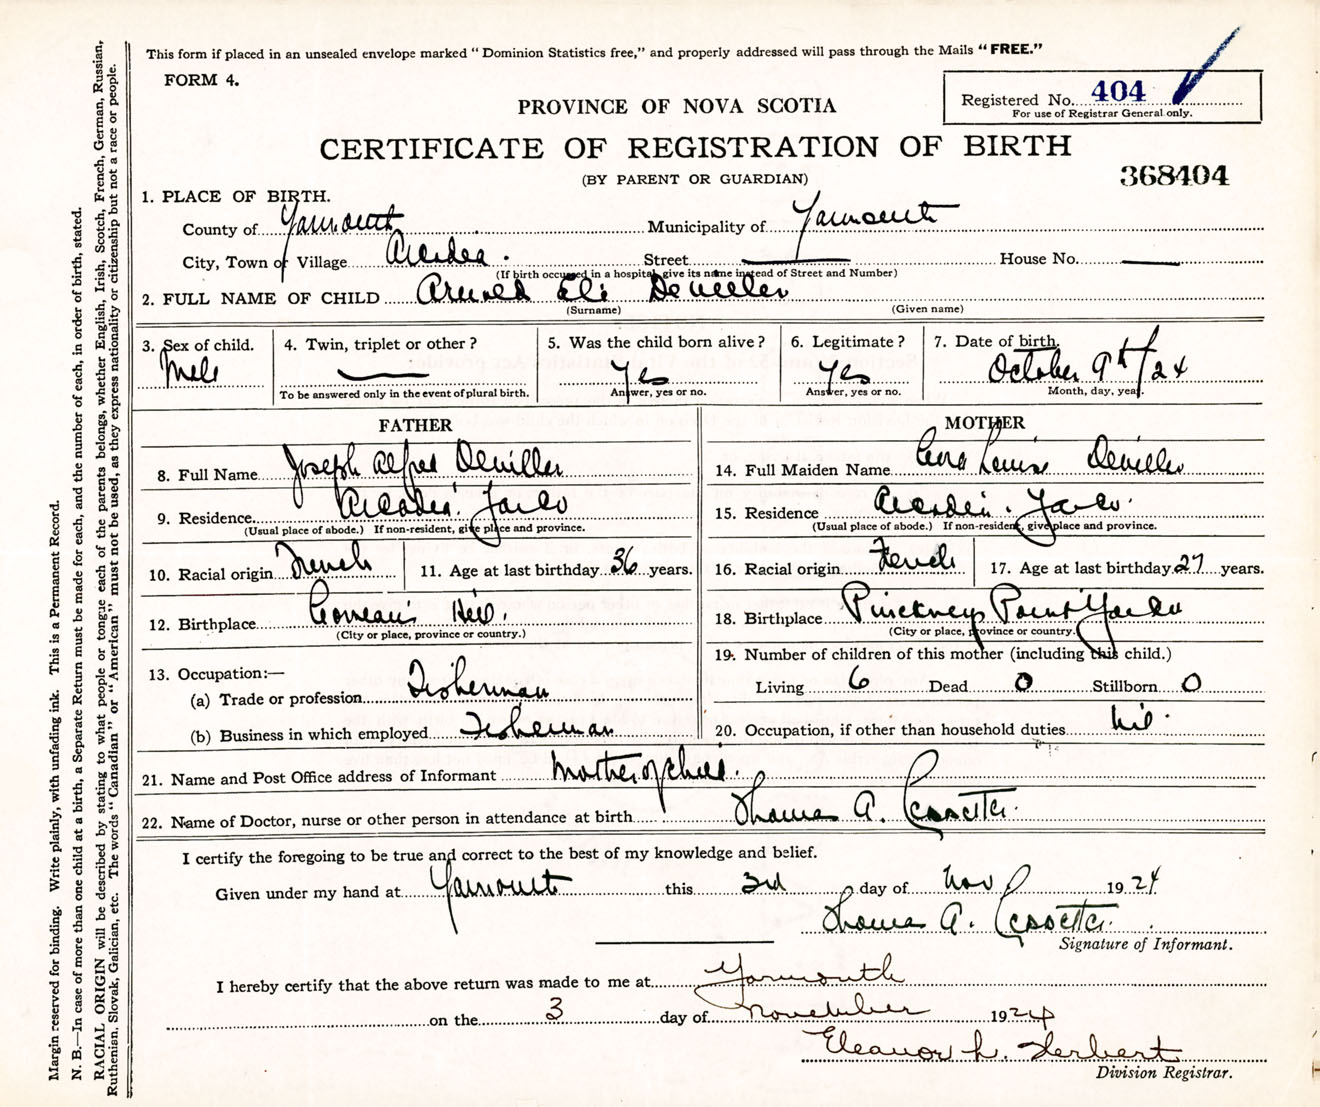 This form if placed in an unsealed envelope marked "Dominion Statistics free," and properly addressed will pass through the Mails "FREE."
FORM 4.
Registered No. 404
For use of Registrar General only.
PROVINCE OF NOVA SCOTIA
CERTIFICATE OF REGISTRATION OF BIRTH
(BY PARENT OR GUARDIAN)
368404
1. PLACE OF BIRTH.
County of Yarmouth Municipality of Yarmouth
City, Town or Village Arcadia. Street — House No. —
(If birth occured in a hospital, give its name instead of Street and Number)
2. FULL NAME OF CHILD Arnold Eli
(Surname) (Given name)
3. Sex of child. 4. Twin, triplet or other? 5. Was the child born alive? 6. Legitimate? 7. Date of birth.
Male — Yes Yes October 9th/24
To be answered only in the event of plural birth. Answer, yes or no. Answer, yes or no. Month, day, year.
FATHER MOTHER
8. Full Name Joseph Alfred 14. Full Maiden Name Louise
9. Residence Arcadia. Yar Co 15. Residence Arcadia. Yar Co.
(Usual place of abode.) If non-resident, give place and province. (Usual place of abode.) If non-resident, give place and province.
10. Racial origin French 11. Age at last birthday 36 years. 16. Racial origin French 17. Age at last birthday 27 years.
12. Birthplace Comeau's Hill. 18. Birthplace Pinckneys Point Yar Co
(City or place, province or country.) (City or place, province or country.)
13. Occupation:— 19. Number of children of this mother (including this child.)
(a) Trade or profession Fisherman Living 6 Dead 0 Stillborn 0
(b) Business in which employed Fisherman 20. Occupation, if other than household duties nil.
21. Name and Post Office address of Informant Mother of child.
22. Name of Doctor, nurse or other person in attendance at birth Thomas A.
I certify the foregoing to be true and correct to the best of my knowledge and belief.
Given under my hand at Yarmouth this 3rd day of Nov 1924
Thomas A.
Signature of Informant.
I hereby certify that the above return was made to me at Yarmouth
on the 3 day of November 1924
Eleanor L. Herbert
Division Registrar.
Margin reserved for binding. Write plainly, with unfading ink. This is a Permanent Record.
N. B.—In case of more than one child at a birth, a Separate Return must be made for each, and the number of each, in order of birth, stated.
RACIAL ORIGIN will be described by stating to what people or tongue each of the parents belongs, whether English, Irish, Scotch, French, German, Russian,
Ruthenian, Slovak, Galician, etc. The words "Canadian" or "American" must not be used, as they express nationality or citizenship but not a race or people.